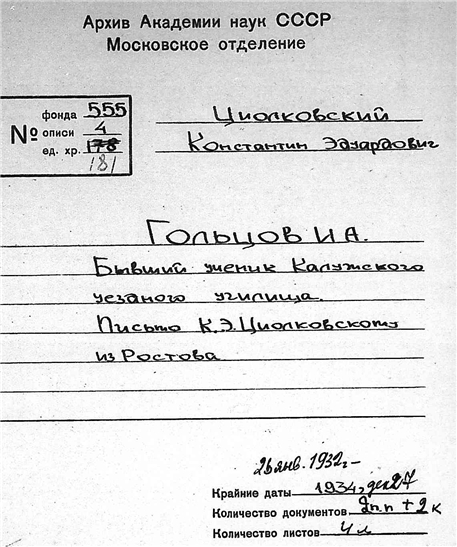 Архив Академии наук СССР
Московское отделение
№ фонда 555
описи 4
ед. хр. 178
181
Циолковский
Константин Эдуардович
Гольцов И А.
Бывший ученик Калужского
уездного училища.
Письмо К.Э. Циолковскому
из Ростова
26 янв. 1932г. –
Крайние даты 1934, дек 27
Количество документов 2п.п + 2к
Количество листов 4л